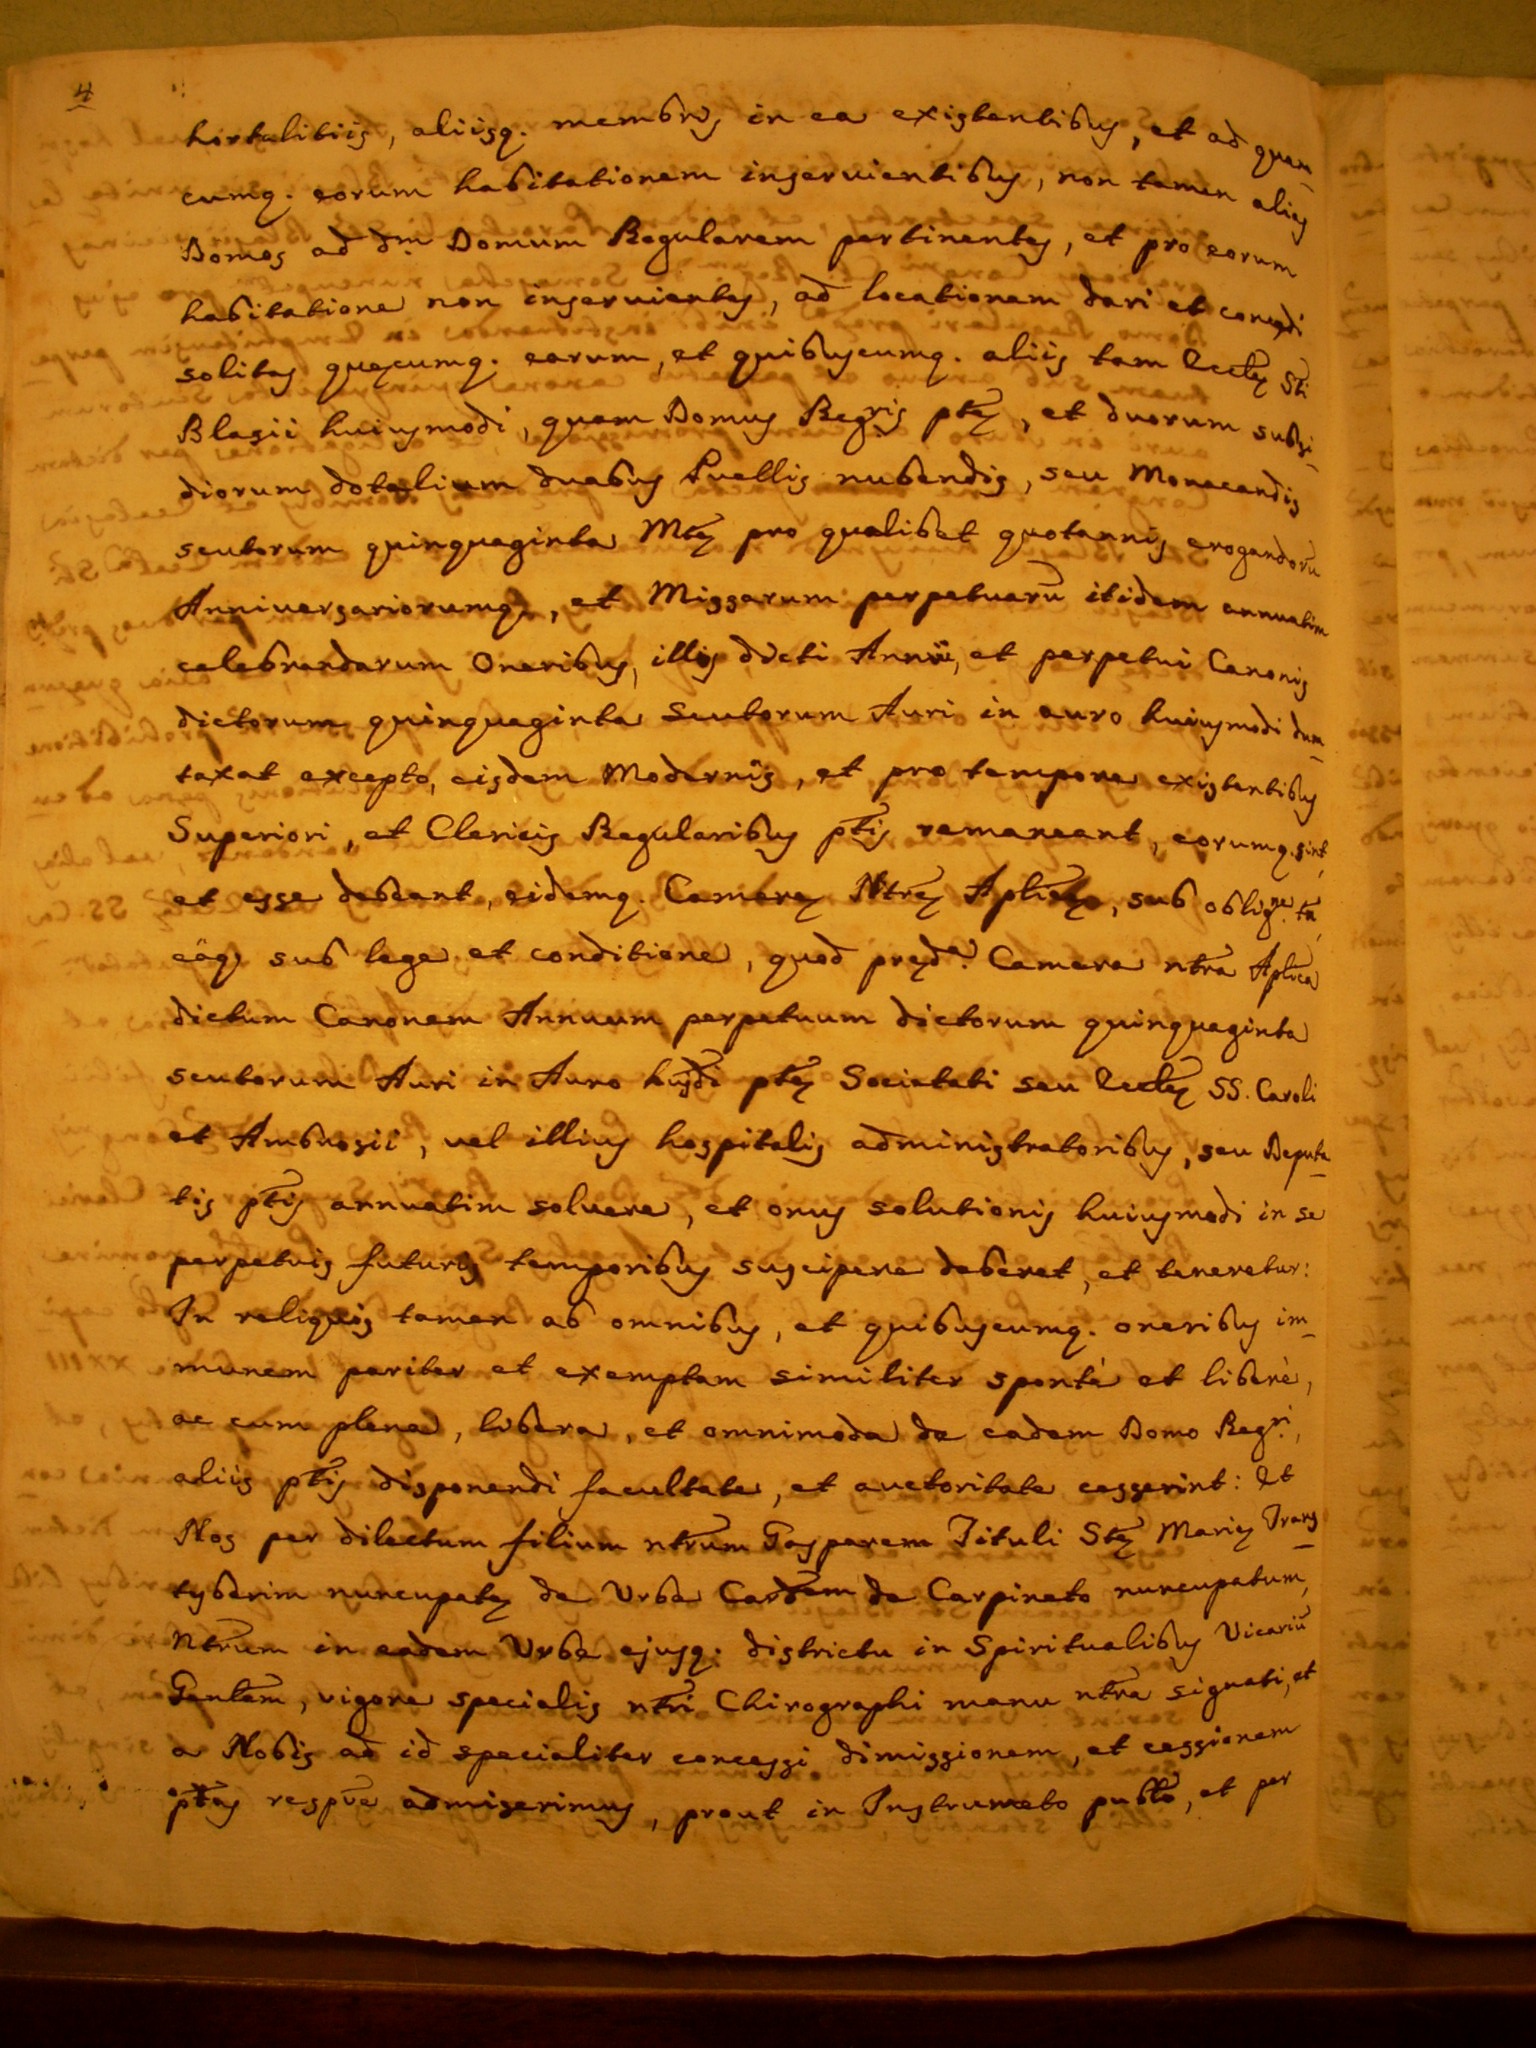 4
hortalitiis, aliisq. membris in ea existentibus, et ad quam_
cumq. eorum habitationem inservientibus, non tamen alias
Domos ad dm̃. Domum Regularem pertinentes, et pro eorum
habitatione non inservientes, ad locationem dari et concedi
solitas quęcumq. earum, et quibuscumq. aliis tam Ecclę̃ Sti
Blasii huiusmodi, quam Domus Regris ptę̃, et duorum subsi_
diorum dotalium duabus Puellis nubendis, seu Monacandis
scutorum quinquaginta Mtę̃ pro qualibet quotannis erogandorũ
Anniversariorumq., et Missarum perpetuarũ itidem annuatim
celebrandarum Oneribus, illis dicti Annui, et perpetui Canonis
dictorum quinquaginta Scutorum Auri in auro huiusmodi dum_
taxat excepto, eisdem Modernis, et pro tempore existentibus
Superiori, et Clericis Regularibus ptĩs remaneant, eorumq. sint,
et esse debeant, eidemq. Camerę Ntrę̃ Aplicę̃, sub obligne. tñ,
eaq. sub lege et conditione, quod pręda. Camera ntrã Aplicã
dictum Canonem Annuum perpetuum dictorum quinquaginta
scutorum Auri in Auro hujdi ptę̃ Societati seu Ecclę̃ SS. Caroli
et Ambrosii, vel illius hospitalis administratoribus, seu Deputa_
tis ptĩs annuatim solvere, et onus solutionis huiusmodi in se
perpetuis futuris temporibus suscipere deberet, et teneretur:
In reliquis tamen ab omnibus, et quibuscumq. oneribus im_
munem pariter et exemptam similiter sponte et liberè,
ac cum plena, libera, et omnimoda de eadem Domo Regri.,
aliis ptĩs disponendi facultate, et auctoritate cesserint: Et
Nos per dilectum filium ntrũm Gasparem Tituli Stę̃ Marię Trans_
tyberim nuncupatę de Urbe Cardẽm de Carpineto nuncupatum,
Ntrũm in eadem Urbe ejusq. districtu in Spiritualibus Vicariũ
Genlẽm, vigore specialis ntrĩ Chirographi manu ntrã signati, et
a Nobis ad id specialiter concessi dimissionem, et cessionem
ptãs respṽe admiserimus, prout in Instrumeto publĩco, et per